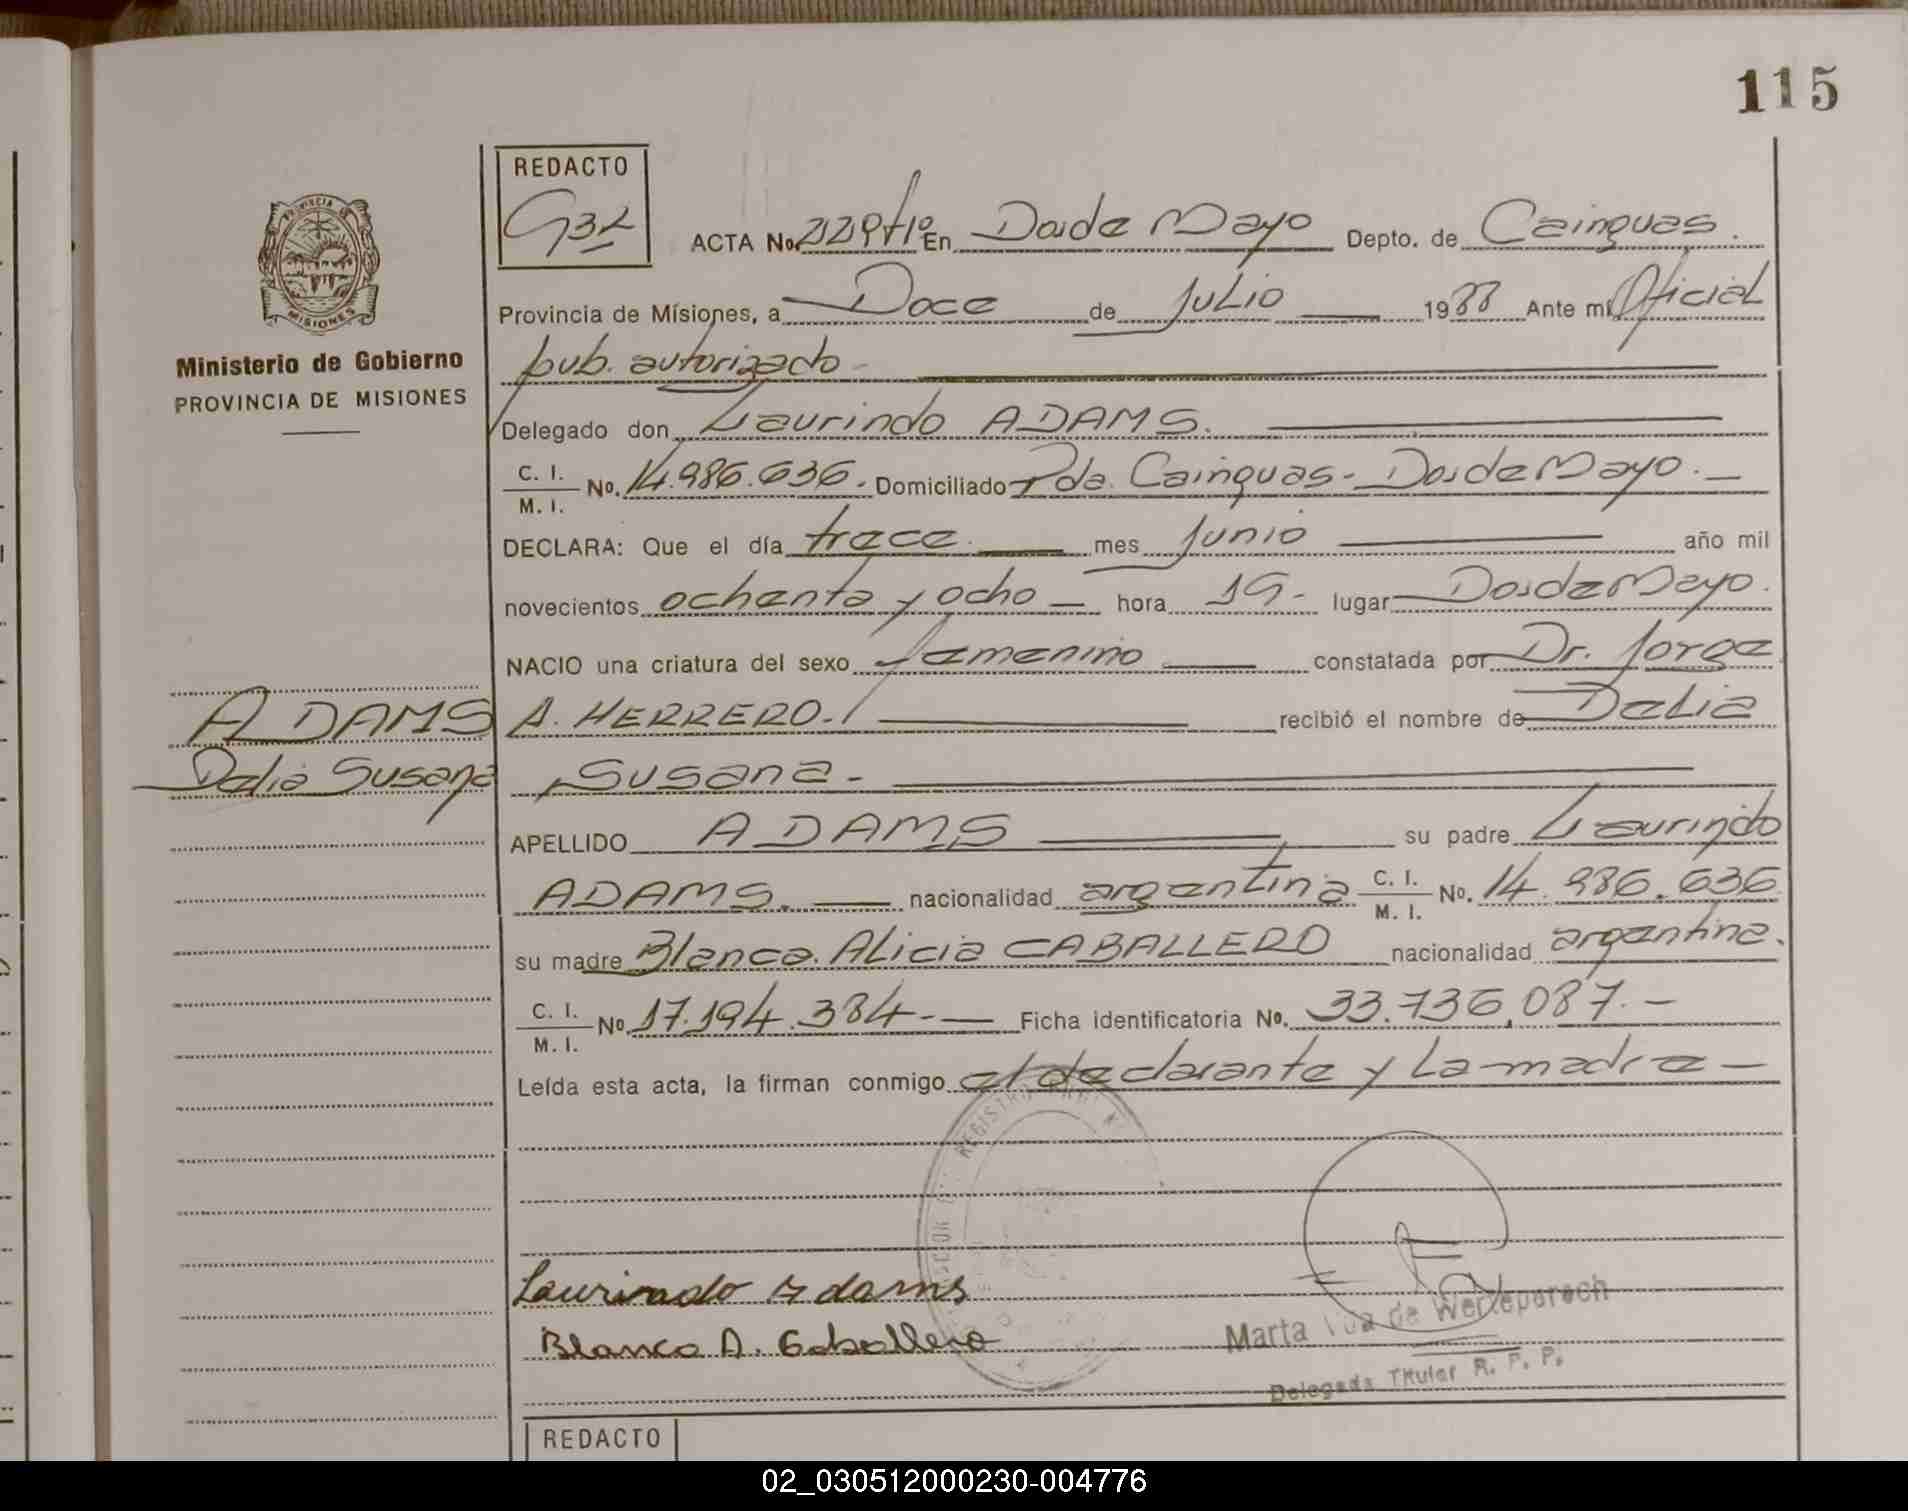 115
REDACTO
PROVINCIA DE
MISIONES
Ministerio de Gobierno
PROVINCIA DE MISIONES
ACTA No. 229 tº En Dos de Mayo Depto. de Cainguas.
Provincia de Misiones, a Doce de Julio 1988 Ante mi Oficial
pub. autorizado
Delegado don Laurindo ADAMS.
C. I.
M. I. No. 14.986.636. Domiciliado Pda. Cainguas - Dos de Mayo. —
DECLARA: Que el día trece mes Junio año mil
novecientos ochenta y ocho — hora 19- lugar Dos de Mayo.
NACIO una criatura del sexo femenino constatada por Dr. Jorge
A. HERRERO. recibió el nombre de Delia
Susana -
ADAMS
Delia Susana
APELLIDO ADAMS su padre Laurindo
ADAMS. — nacionalidad argentina C. I. M. I. No. 14.986.636
su madre Blanca Alicia CABALLERO nacionalidad argentina.
C. I.
M. I. No. 17.194.384.- — Ficha identificatoria No. 33.736.087.-
Leída esta acta, la firman conmigo el declarante y la madre —
Laurindo Adams
Blanca A. Caballero
Marta Vda de
Delegada Titular R. P. P.
REDACTO
02_030512000230-004776